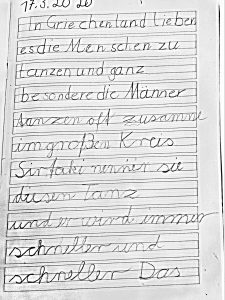 17.3.2020
In Griechenland lieben
es die Menschen zu
tanzen und ganz
besondere die Männer
tanzen oft zusamme
im großen Kreis
Sirtaki nennen sie
diesen Tanz
und er wird immer
schneller und
schneller Das